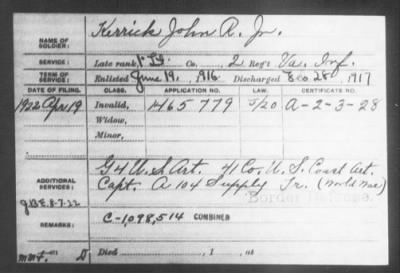 NAME OF SOLDIER: Kerrick John R. Jr.
SERVICE: Late rank, 1-Lt. Co. , 2 Reg't Va. Inf.
TERM OF SERVICE: Enlisted June 19, 1916 Discharged 28, 1917
DATE OF FILING. CLASS. APPLICATION NO. LAW. CERTIFICATE NO.
1922 Apr 19 Invalid, 1465 779 5/20 A-2-3-28
Widow,
Minor,
ADDITIONAL SERVICES: G 4 U.S. Art. 41 Co. U.S. Coast Art.
Capt. A 104 Supply Tr.
Border Defense.
8-7-22
REMARKS: C-1,098,514 COMBINED
Died , 1 , at